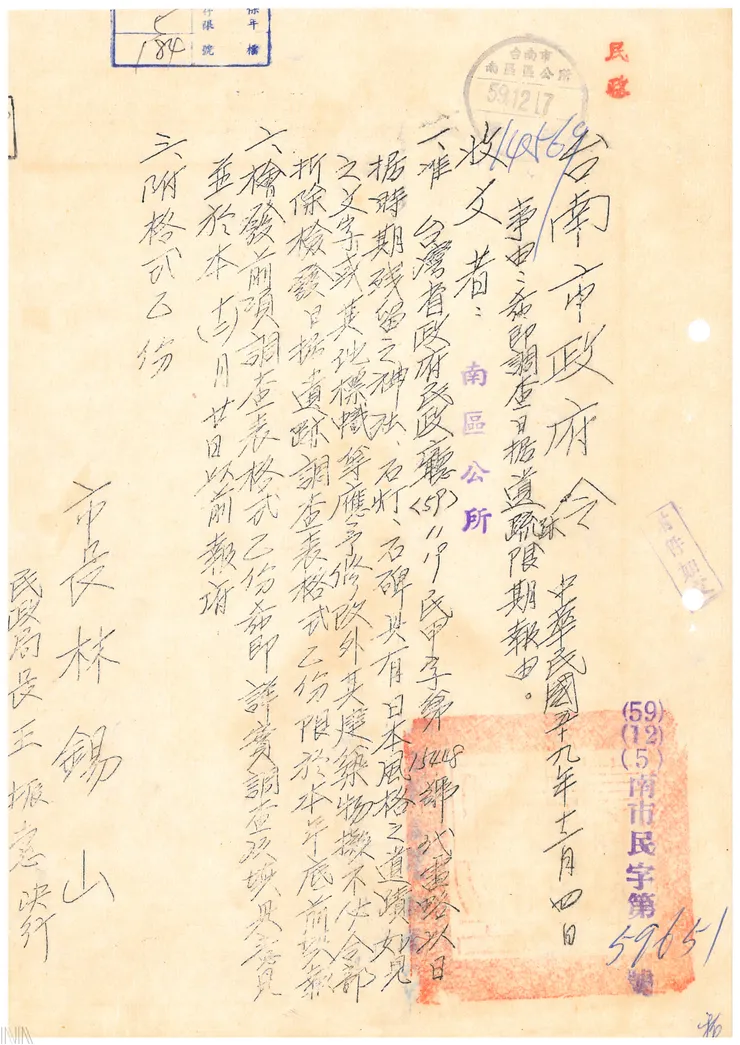 民政
台南市
南區區公所
59.12.17
14569
5
184
台南市政府令
中華民國五十九年十二月四日
(59)
(12)
(5)
南市民字第
59651
號
事由：希即調查日据遺跡限期報由。
收文者：南區公所
一、准 台灣省政府民政廳(59)11.19民甲字第15448號代電略以日
据時期残留之神社、石灯、石碑具有日本風格之遺蹟如見
之文字或其他標幟等應予修改外其建築物擬不必令部
折除檢發日据遺跡調查表格式乙份限於本年底前
檢發前項調查表格式乙份希即詳實調查填具意見
並於本(十二)月廿日以前報府
三、附格式乙份
市長林錫山
民政局長王振 決行